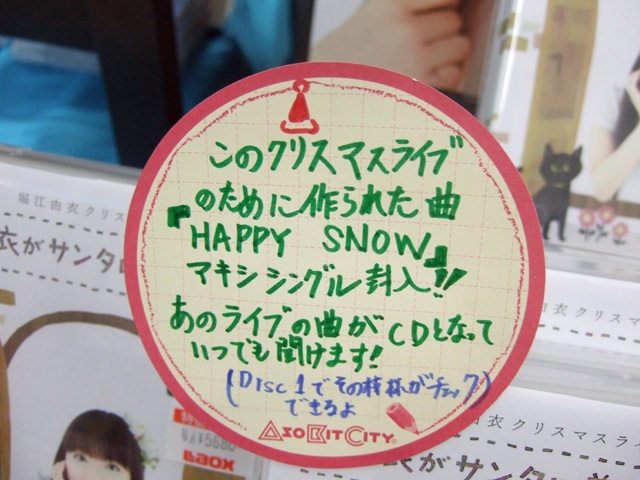 このクリスマスライブ
のために作られた曲
『HAPPY SNOW』
マキシシングル封入!!
あのライブの曲がCDとなって
いつでも聞けます!
(Disc1でその特典がチェック)
できるよ
ASOBITCITY
堀江由衣クリス
衣がサンタ
税込¥5680
Laox
衣クリスマス
由衣クリスマスラ
衣がサンタ